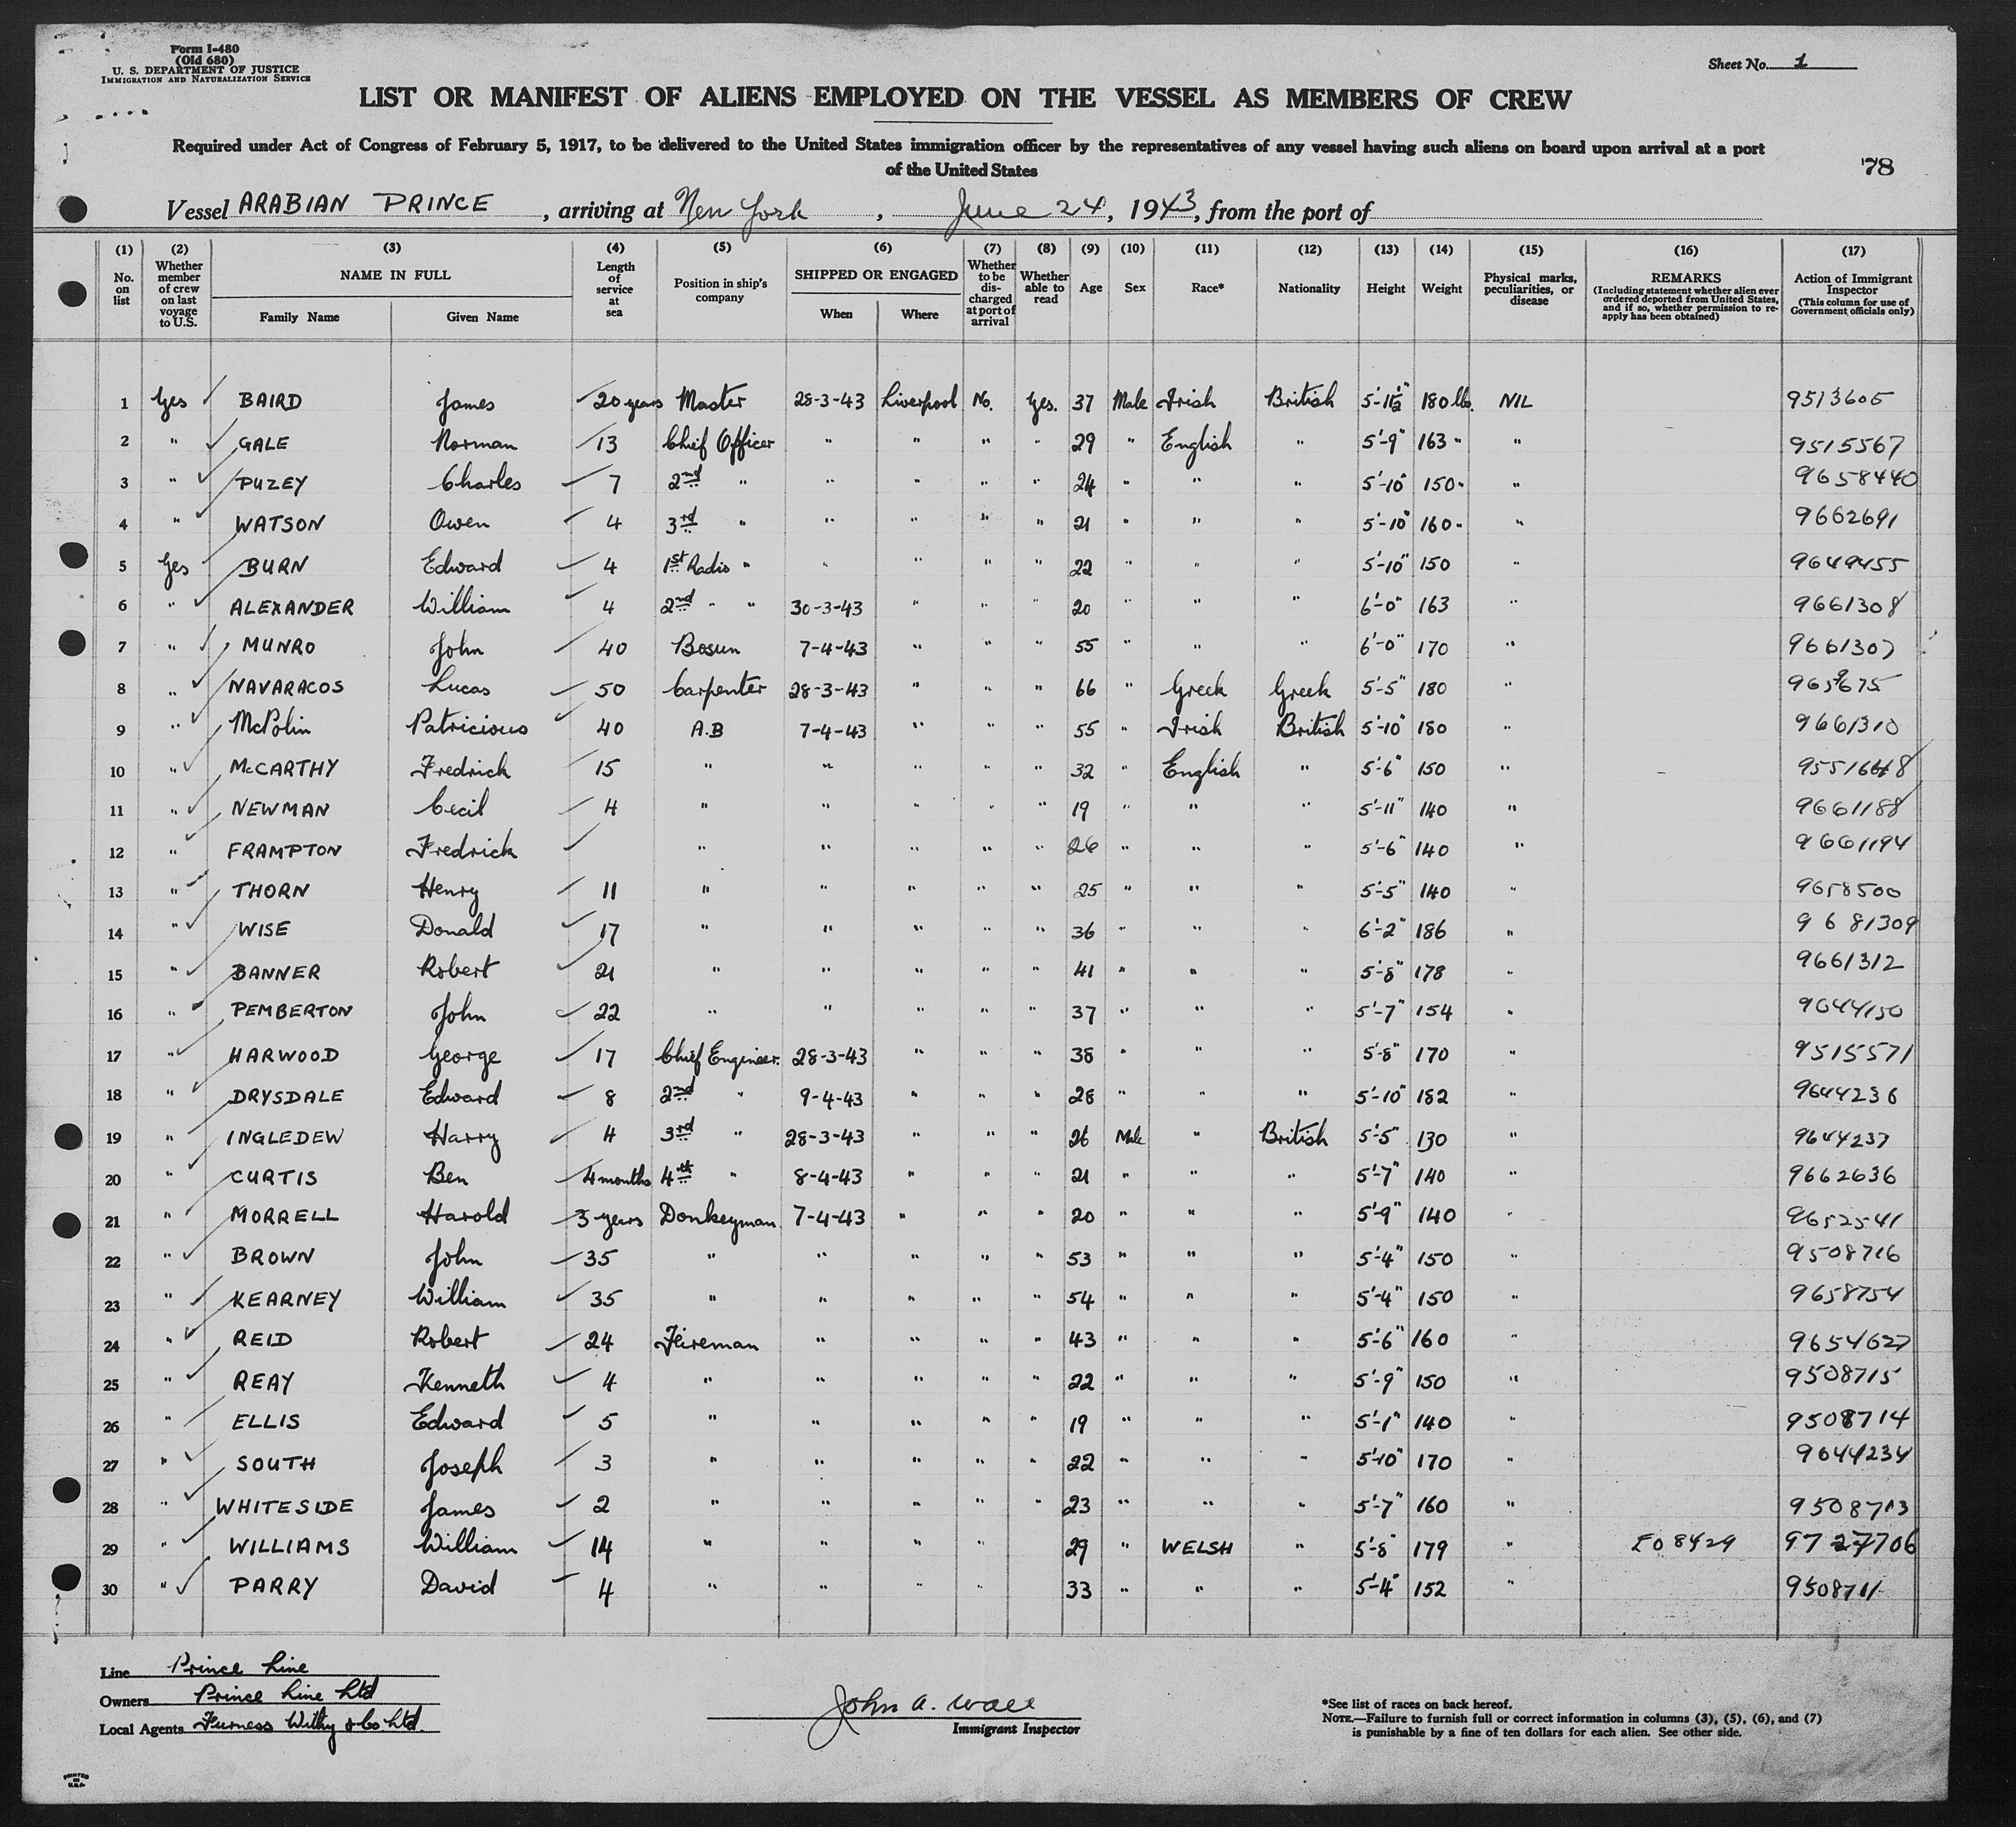 Form I-480
(Old 680)
U. S. DEPARTMENT OF JUSTICE
IMMIGRATION AND NATURALIZATION SERVICE
Sheet No. 1
LIST OR MANIFEST OF ALIENS EMPLOYED ON THE VESSEL AS MEMBERS OF CREW
Required under Act of Congress of February 5, 1917, to be delivered to the United States immigration officer by the representatives of any vessel having such aliens on board upon arrival at a port
of the United States
78
Vessel ARABIAN PRINCE, arriving at New York, June 24, 1943, from the port of
(1) (2) (3) (4) (5) (6) (7) (8) (9) (10) (11) (12) (13) (14) (15) (16) (17)
No. on list Whether member of crew on last voyage to U.S. NAME IN FULL Family Name Given Name Length of service at sea Position in ship's company SHIPPED OR ENGAGED When Where Whether to be discharged at port of arrival Whether able to read Age Sex Race* Nationality Height Weight Physical marks, peculiarities, or disease REMARKS (Including statement whether alien ever ordered deported from United States, and if so, whether permission to re-apply has been obtained) Action of Immigrant Inspector (This column for use of Government officials only)
1 Yes BAIRD James 20 years Master 28-3-43 Liverpool No. Yes. 37 Male Irish British 5'-11½" 180 lbs. NIL 9513605
2 " GALE Norman 13 Chief Officer " " " " 29 " English " 5'-9" 163 " " 9515567
3 " PUZEY Charles 7 2nd " " " " " 24 " " " 5'-10" 150 " " 9658440
4 " WATSON Owen 4 3rd " " " " " 21 " " " 5'-10" 160 " " 9662691
5 Yes BURN Edward 4 1st Radio " " " " " 22 " " " 5'-10" 150 " 9649455
6 " ALEXANDER William 4 2nd " " 30-3-43 " " " 20 " " " 6'-0" 163 " 9661308
7 " MUNRO John 40 Bosun 7-4-43 " " " 55 " " " 6'-0" 170 " 9661307
8 " NAVARACOS Lucas 50 Carpenter 28-3-43 " " " 66 " Greek Greek 5'-5" 180 "
9 " McPolin Patricious 40 A.B 7-4-43 " " " 55 " Irish British 5'-10" 180 " 9661310
10 " McCARTHY Fredrick 15 " " " " " 32 " English " 5'-6" 150 "
11 " NEWMAN Cecil 4 " " " " " 19 " " " 5'-11" 140 " 9661188
12 " FRAMPTON Fredrick " " " " " 26 " " " 5'-6" 140 " 9661194
13 " THORN Henry 11 " " " " " 25 " " " 5'-5" 140 " 9658500
14 " WISE Donald 17 " " " " " 36 " " " 6'-2" 186 " 9681309
15 " BANNER Robert 21 " " " " " 41 " " " 5'-8" 178 " 9661312
16 " PEMBERTON John 22 " " " " " 37 " " " 5'-7" 154 " 9644150
17 " HARWOOD George 17 Chief Engineer. 28-3-43 " " " 38 " " " 5'-8" 170 " 9515571
18 " DRYSDALE Edward 8 2nd " 9-4-43 " " " 28 " " " 5'-10" 182 " 9644236
19 " INGLEDEW Harry 4 3rd " 28-3-43 " " " 26 Male " British 5'-5" 130 " 9644237
20 " CURTIS Ben 4 months 4th " 8-4-43 " " " 21 " " " 5'-7" 140 " 9662636
21 " MORRELL Harold 3 years Donkeyman 7-4-43 " " " 20 " " " 5'-9" 140 " 9652541
22 " BROWN John 35 " " " " " 53 " " " 5'-4" 150 " 9508716
23 " KEARNEY William 35 " " " " " 54 " " " 5'-4" 150 " 9658754
24 " REID Robert 24 Fireman " " " " 43 " " " 5'-6" 160 " 9654627
25 " REAY Kenneth 4 " " " " " 22 " " " 5'-9" 150 " 9508715
26 " ELLIS Edward 5 " " " " " 19 " " " 5'-1" 140 " 9508714
27 " SOUTH Joseph 3 " " " " " 22 " " " 5'-10" 170 " 9644234
28 " WHITESIDE James 2 " " " " " 23 " " " 5'-7" 160 " 9508713
29 " WILLIAMS William 14 " " " " " 29 " WELSH " 5'-8" 179 " E08429 9727706
30 " PARRY David 4 " " " " 33 " " " 5'-4" 152 " 9508711
Line Prince Line
Owners Prince Line Ltd
Local Agents Furness Withy & Co Ltd.
John A. Wall
Immigrant Inspector
*See list of races on back hereof.
NOTE.—Failure to furnish full or correct information in columns (3), (5), (6), and (7)
is punishable by a fine of ten dollars for each alien. See other side.
PRINTED IN U.S.A.